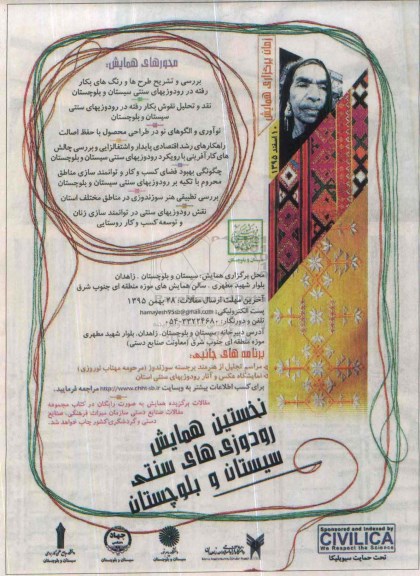 محورهای همایش:
بررسی و تشریح طرح ها و رنگ های بکار
رفته در رودوزیهای سنتی سیستان و بلوچستان
نقد و تحلیل نقوش بکار رفته در رودوزیهای سنتی
سیستان و بلوچستان
نوآوری و الگوهای نو در طراحی محصول با حفظ اصالت
راهکارهای رشد اقتصادی پایدار و اشتغالزایی و بررسی چالش
های کارآفرینی با رویکرد رودوزیهای سنتی سیستان و بلوچستان
چگونگی بهبود فضای کسب و کار و توانمند سازی مناطق
محروم با تکیه بر رودوزیهای سنتی سیستان و بلوچستان
بررسی تطبیقی هنر سوزندوزی در مناطق مختلف استان
نقش رودوزیهای سنتی در توانمند سازی زنان
و توسعه کسب و کار روستایی
زمان برگزاری همایش:
۱۰ اسفند ۱۳۹۵
محل برگزاری همایش: سیستان و بلوچستان . زاهدان
بلوار شهید مطهری . سالن همایش های موزه منطقه ای جنوب شرق
آخرین مهلت ارسال مقالات: ۲۸ بهمن ۱۳۹۵
پست الکترونیکی:
تلفن و دورنگار: ۳۳۲۳۴۶۸۰-۰۵۴
آدرس دبیرخانه: سیستان و بلوچستان، زاهدان، بلوار شهید مطهری
موزه منطقه ای جنوب شرق (معاونت صنایع دستی)
برنامه های جانبی:
مراسم تجلیل از هنرمند برجسته سوزندوز (مرحومه مهتاب نوروزی)
نمایشگاه عکس و آثار رودوزیهای سنتی استان
برای کسب اطلاعات بیشتر به وبسایت مراجعه فرمایید.
مقالات برگزیده همایش به صورت رایگان در کتاب مجموعه
مقالات صنایع دستی سازمان میراث فرهنگی، صنایع
دستی و گردشگری کشور چاپ خواهد شد.
نخستین همایش
رودوزی های سنتی
سیستان و بلوچستان
Sponsored and Indexed by
CIVILICA
We Respect the Science
تحت حمایت سیویلیکا
جهاد